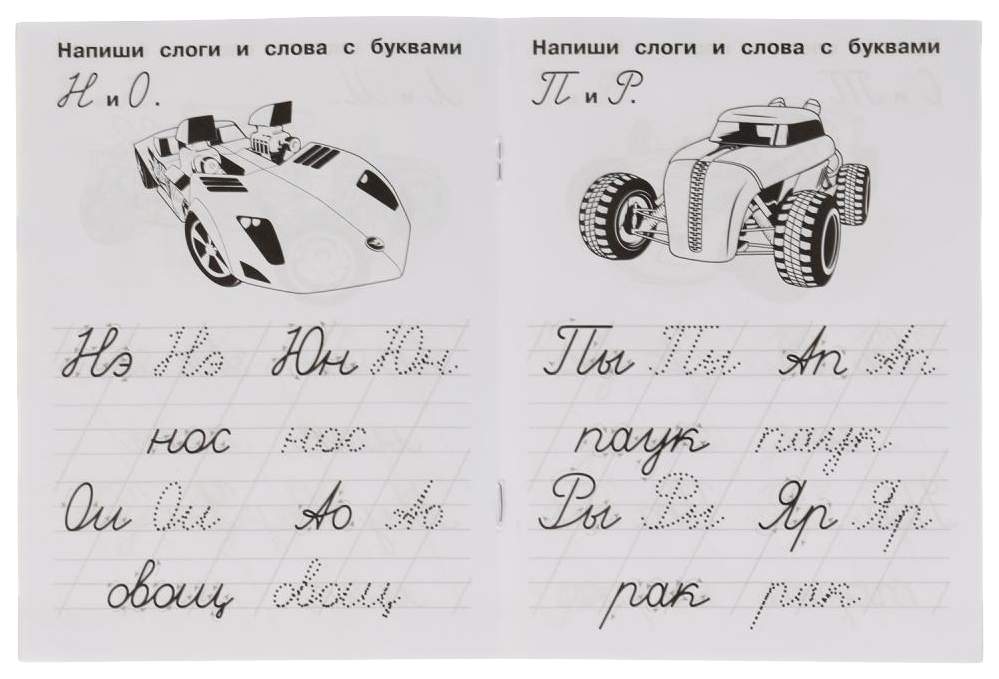 Напиши слоги и слова с буквами
Н и О.
Нэ Нэ Юн Юн
нос нос
Ои Ои Ао Ао
овощ овощ
Напиши слоги и слова с буквами
П и Р.
Пы Пы Ап Ап
паук паук
Ры Ры Яр Яр
рак рак